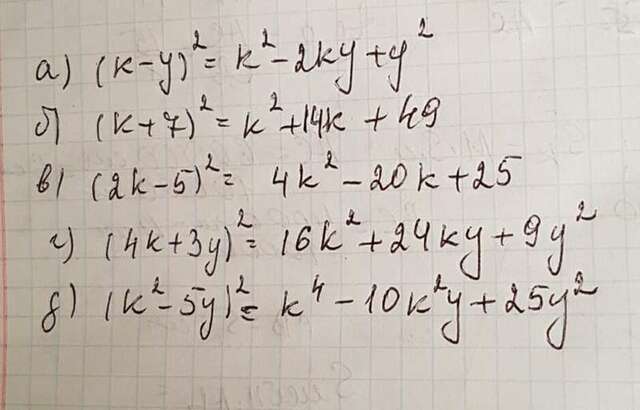 а) (k-y)² = k² - 2ky + y²
б) (k+7)² = k² + 14k + 49
в) (2k-5)² = 4k² - 20k + 25
г) (4k+3y)² = 16k² + 24ky + 9y²
д) (k²-5y)² = k⁴ - 10k²y + 25y²